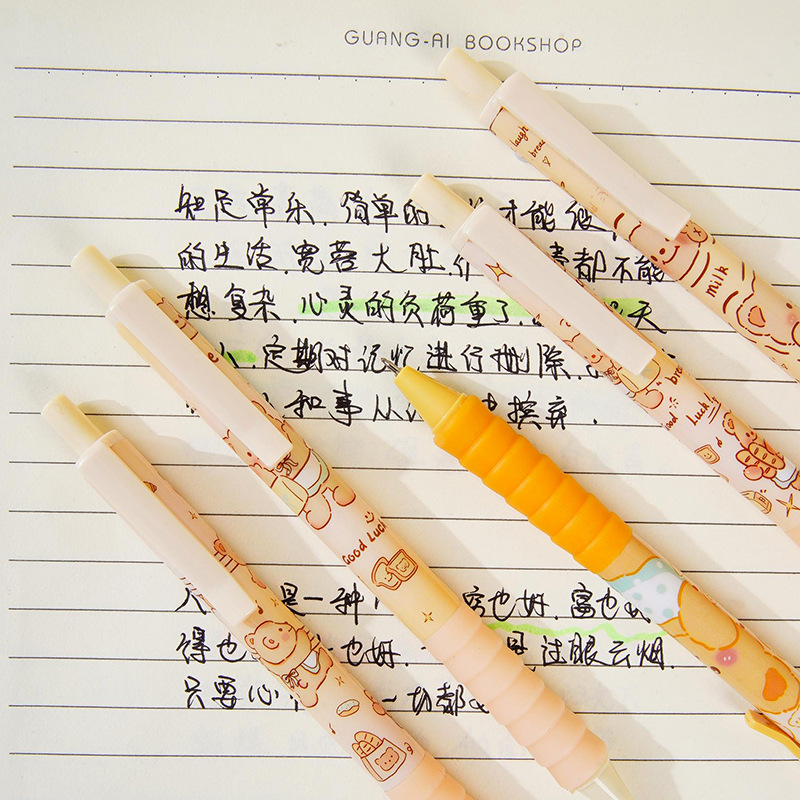 GUANG-AI BOOKSHOP
laugh
bread
知足常乐.简单的 才能
的生活.宽容大肚. 都不能
milk
想复杂.心灵的负荷重了. 天
定期对记忆进行删除.
bre
和事从 摈弃.
Good Luck!
Good Luck
人 是一种 穷也好.富也
得也 也好. 过眼云烟.
只要心 一切都